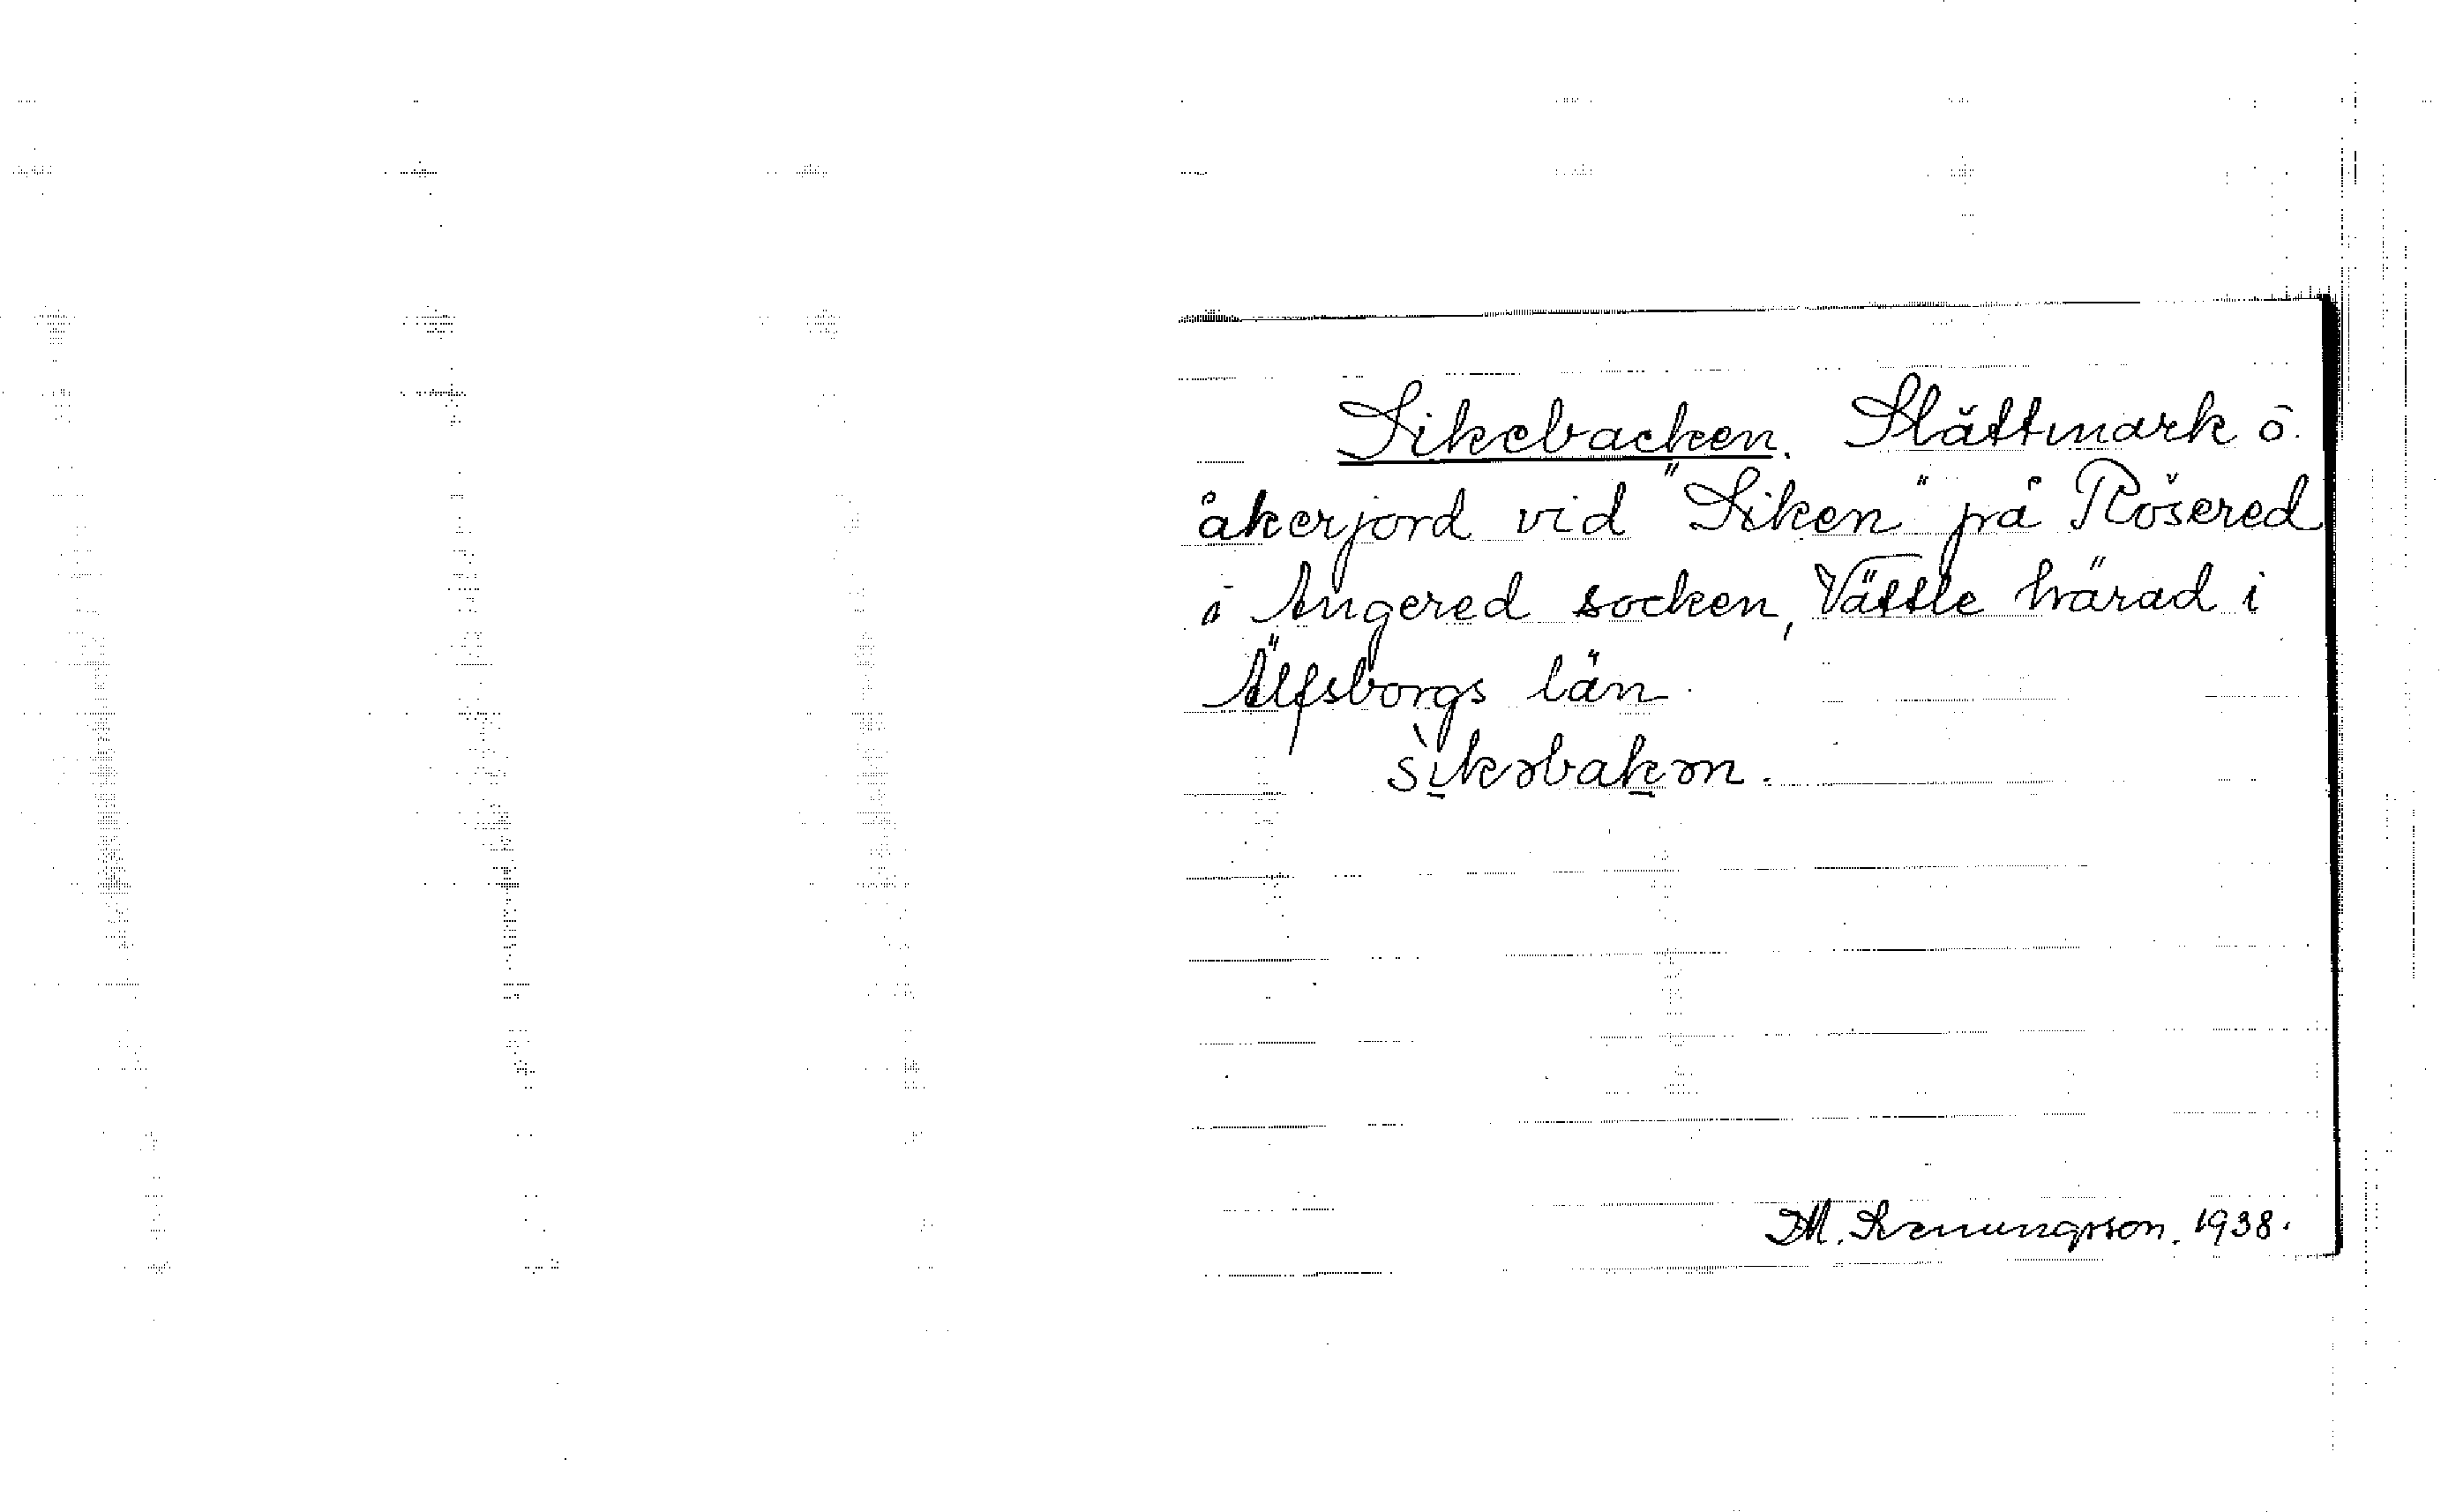 Sikebacken. Slåttmark o.
åkerjord vid "Siken" på Rösered
i Angered socken, Vättle härad i
Älfsborgs län.
sìkəbakən.
1938.